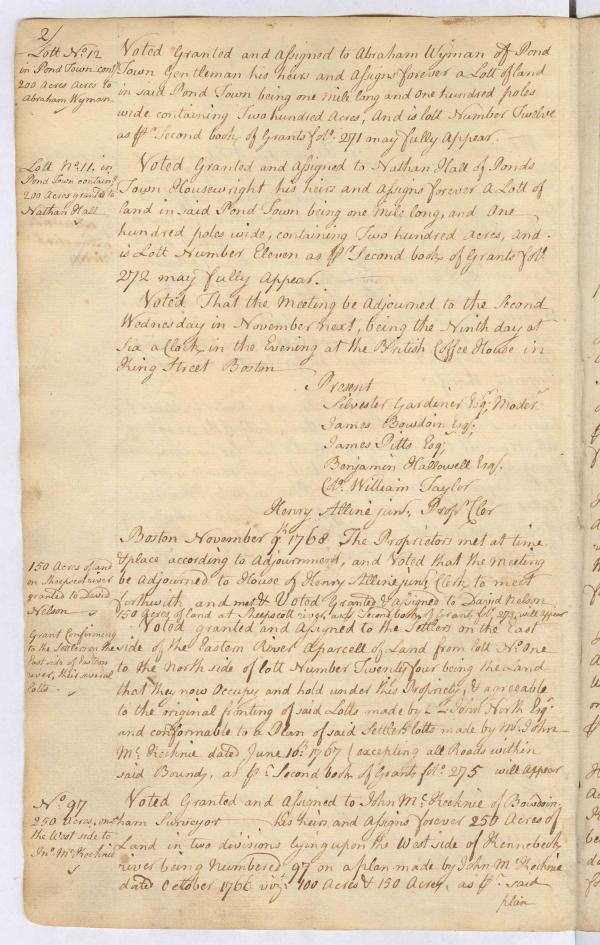 2/
Lott No. 12
in Pond Town cont.g
200 Acres Acres to
Abraham Wyman
Voted Granted and Assigned to Abraham Wyman of Pond
Town Gentleman his heirs and Assigns forever a Lott of land
in said Pond Town being one mile long and One hundred poles
wide containing Two hundred Acres, And is lott Number Twelve
as pr. Second book of Grants fol. 271 may fully Appear.
Lott No. 11. in
Pond Town containg
200 Acres granted to
Nathan Hall
Voted Granted and Assigned to Nathan Hall of Ponds
Town Housewright his heirs and Assigns forever A Lott of
land in said Pond Town being one Mile long, and One
hundred poles wide, containing Two hundred Acres, and
is Lott Number Eleven as pr. Second book of Grants fol.
272 may fully Appear.
Voted That the Meeting be Adjourned to the Second
Wednesday in November next, being the Ninth day at
Six a Clock in the Evening at the British Coffee House in
King Street Boston
Present
Silvester Gardiner Esqr. Moder.
James Bowdoin Esqr.
James Pitts Esqr.
Benjamin Hallowell Esqr.
Col. William Taylor
Henry Alline junr. Propr. Cler
Boston November 9th. 1768 The Proprietors met at time
& place according to Adjournment, and Voted that the meeting
be Adjourned to House of Henry Alline junr. Clerk to meet
forthwith, and met & Voted Granted & assigned to David Nelson
150 Acres of land at Sheepscott river, as pr. Second book of Grants fol. 273, will appear
150 Acres of land
on Sheepscot river
granted to David
Nelson
Grant Confirming
to the Settlers on the
East side of Eastern
river, their several
Lotts
Voted granted and Assigned to the Settlers on the East
side of the Eastern River A parcell of Land from lott No. One
to the North side of lott Number Twenty four being the Land
that they now Occupy and hold under this Propriety, & agreeable
to the original fronting of said Lotts made by John North Esqr.
and conformable to a Plan of said Settlers lotts made by Mr. John
Mc.Kechnie dated June 10th. 1767 (excepting all Roads within
said Bounds, as pr. Second book of Grants fol. 275 will Appear
No. 97
250 Acres, on
the West side to
Jno. McKechnie
Voted Granted and Assigned to John Mc.Kechnie of Bowdoin
ham Surveyor his heirs and Assigns forever 250 Acres of
Land in two divisions lying upon the West side of Kennebeck
river being Numbered 97 on a plan made by John McKechnie
dated October 1766 viz. 100 Acres & 150 Acres, as pr. said
plan